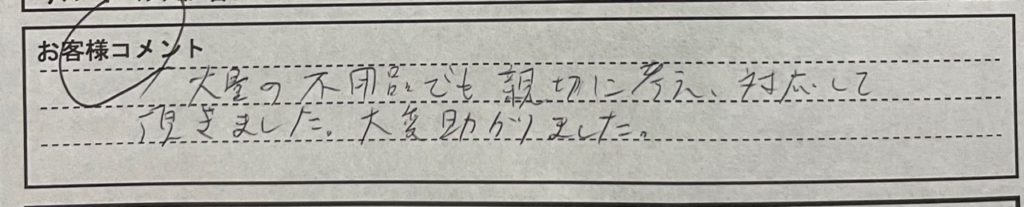 お客様コメント
大量の不用品でも親切に考え、対応して
頂きました。大変助かりました。